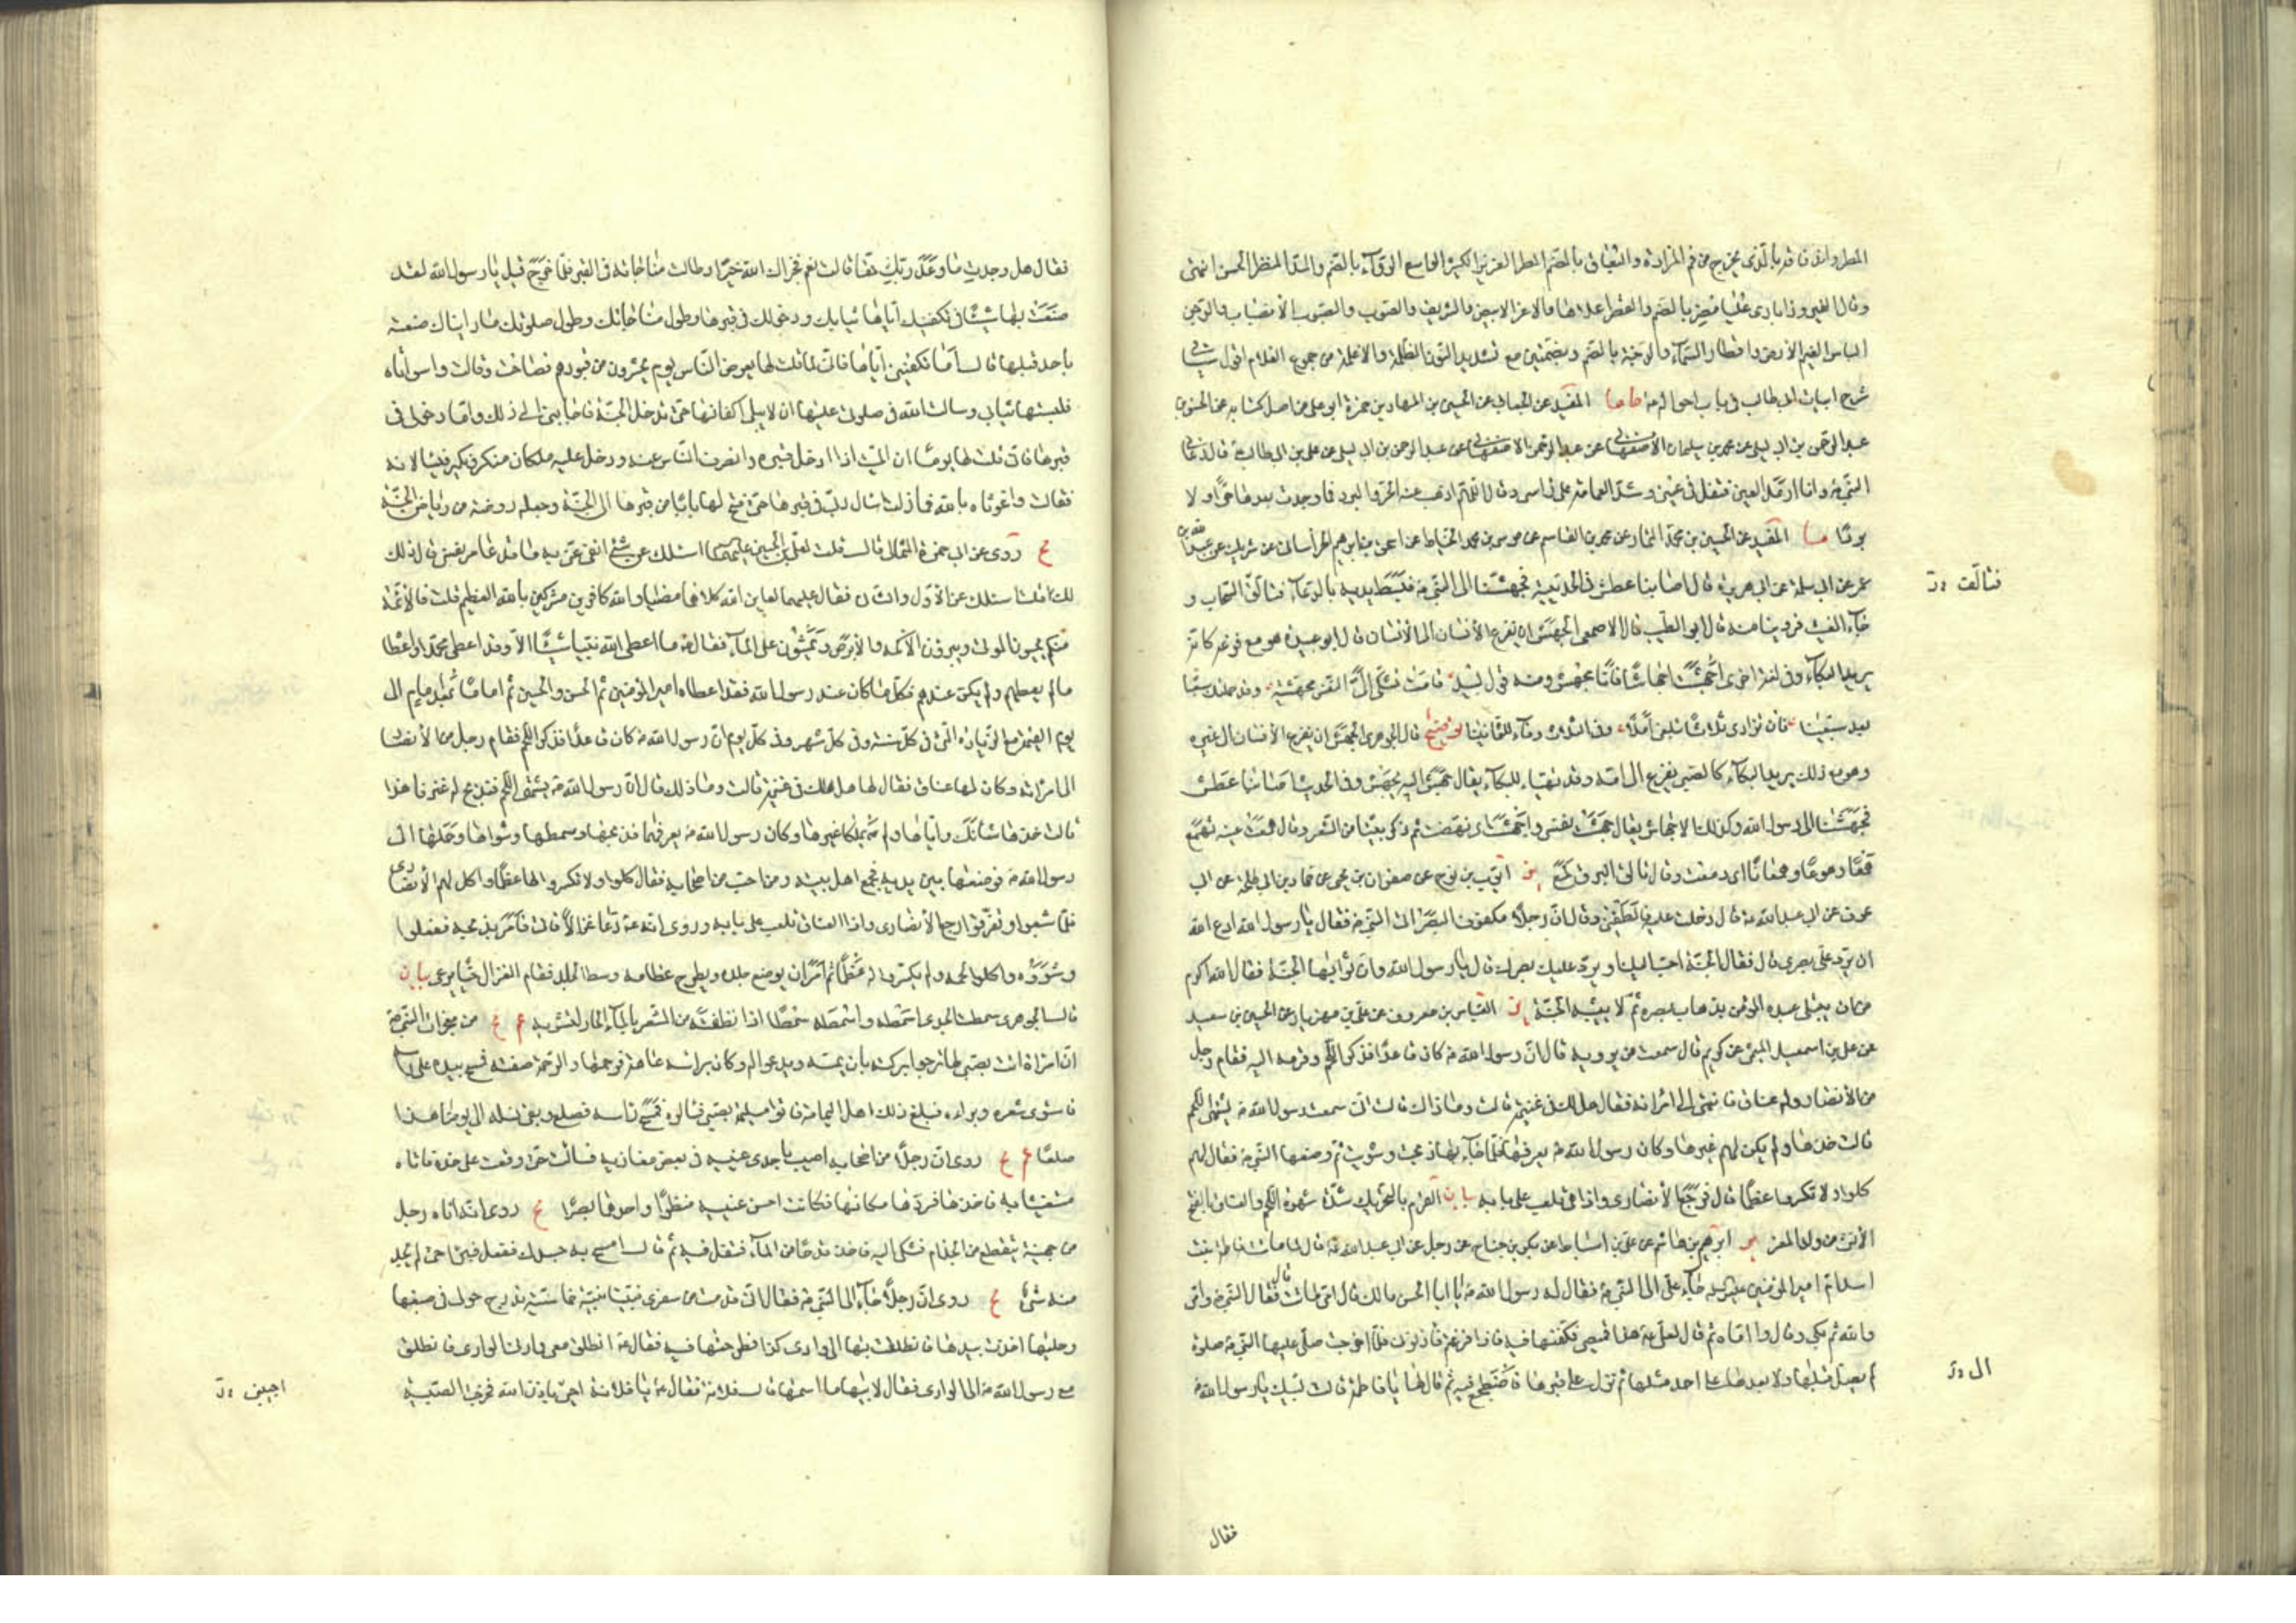 المطر واندفاقه بالذي يخرج من فم المزادة والبعاق بالضم المطر الغزير الكثير الواسع الرواء بالضم والمد المنظر الحسن انتهى
وقال الفيروزابادى عليا مضر بالضم والقصر اعلاها والاغر الابيض والشريف والصوب والصيوب الانصباب والدجن
الباس الغيم الارض واقطار السماء والدجنة بالضم وبضمتين مع تشديد النون الظلمة والاغلمة من جموع الغلام اقول سيأتي
شرح ابيات ابي طالب في باب احواله ما المفيد عن الجعابى عن الحسين بن الهاد بن حمزة ابو على من اصل كتابه عن الحسن بن
عبد الرحمن بن ابى ليلى عن محمد بن سليمان الاصفهانى عن عبد الرحمن الاصفهانى عن عبد الرحمن بن ابى ليلى عن على بن ابى طالب قال دعانى
النبى وانا ارمد العين فتفل في عينى وشد العمامة على راسى وقال اللهم اذهب عنه الحر والبرد فما وجدت بعدها حرا ولا
بردا ما المفيد عن الحسين بن محمد التمار عن محمد بن القاسم عن موسى بن محمد الخياط عن اسحق بن ابرهيم الخراسانى عن شريك عن عبد الله بن
عمر عن ابى سلمة عن ابى هريرة قال اصابنا عطش في الحديبية فجهشنا الى النبى فبسط يديه بالدعاء فتألق السحاب و
جاء الغيث فروينا منه قال ابو الطيب قال الاصمعى الجهش ان يفزع الانسان الى الانسان قال ابو عبيدة هو مع فزعه كانه
يريد البكاء وفي لغة اخرى اجهشت اجهاشا فانا مجهش ومنه قول لبيد قامت تشكى الى النفس مجهشة وقد حملتك سبعا
بعد سبعينا فان تزادى ثلاثا تبلغى املا وفي الثلاث وفاء للثمانينا توضيح قال الجوهرى الجهش ان يفزع الانسان الى غيره
وهو مع ذلك يريد البكاء كالصبى يفزع الى امه وقد تهيأ للبكاء يقال جهش اليه يجهش وفي الحديث اصابنا عطش
فجهشنا الى رسول الله وكذلك الاجهاش يقال جهشت نفسى واجهشت اى نهضت ثم ذكر بيتا من الشعر وقال همعت عينه تهمع
همعا وهموعا وهمعانا اى دمعت وقال تألق البرق لمع ير ايوب بن نوح عن صفوان بن يحيى عن حماد بن ابى طلحة عن ابى
عوف عن ابى عبد الله قال دخلت عليه فالطفنى وقال ان رجلا مكفوف البصر اتى النبى فقال يا رسول الله ادع الله
ان يرد على بصرى قال فقال الجنة احب اليك او يرد عليك بصرك قال يا رسول الله وان ثوابها الجنة فقال الله اكرم
من ان يبتلى عبده المؤمن بذهاب بصره ثم لا يثيبه الجنة ير العباس بن معروف عن على بن مهزيار عن الحسين بن سعيد
عن على بن اسمعيل الميثمى عن كريم قال سمعت من يرويه قال ان رسول الله كان قاعدا فذكر اللحم وقرمه اليه فقام رجل
من الانصار وله عناق فانتهى الى امرأته فقال هل لك في غنيمة قالت وما ذاك قال انى سمعت رسول الله يشتهى اللحم
قالت خذها ولم يكن لهم غيرها وكان رسول الله يعرفها فلما جاء بها ذبحت وشويت ثم وضعها النبى فقال لهم
كلوا ولا تكسروا عظما قال فرجع الانصارى واذا هى تلعب على بابه بيان القرم بالتحريك شدة شهوة اللحم والعناق بالفتح
الانثى من ولد المعز ير ابرهيم بن هاشم عن على بن اسباط عن بكر بن جناح عن رجل عن ابى عبد الله قال لما ماتت فاطمة بنت
اسد ام امير المؤمنين جاء على الى النبى فقال له رسول الله يا ابا الحسن مالك قال امى ماتت قال فقال النبى وامى
والله ثم بكى وقال وا اماه ثم قال لعلى هذا قميصى فكفنها فيه فاذا فرغتم فاذنونى فلما اخرجت صلى عليها النبى صلوة
لم يصل قبلها ولا بعدها على احد مثلها ثم نزل على قبرها فاضطجع فيه ثم قال لها يا فاطمة قالت لبيك يا رسول الله
فتألق
الى
فقال
فقال هل وجدت ما وعد ربك حقا قالت نعم فجزاك الله خيرا وطالت مناجاته في القبر فلما خرج قيل يا رسول الله لقد
صنعت بها شيئا في تكفينك اياها ثيابك ودخولك في قبرها وطول مناجاتك وطول صلوتك ما رأيناك صنعته
باحد قبلها قال اما تكفينى اياها فانى لما قلت لها يعرض الناس يوم يحشرون من قبورهم فصاحت وقالت وا سوأتاه
فلبستها ثيابى وسالت الله في صلوتى عليها ان لا يبلى اكفانها حتى تدخل الجنة فاجابنى الى ذلك واما دخولى في
قبرها فانى قلت لها يوما ان الميت اذا ادخل قبره وانصرف الناس عنه ودخل عليه ملكان منكر ونكير فيسألانه
فقالت وا غوثاه بالله فما زلت اسال ربى في قبرها حتى فتح لها بابا من قبرها الى الجنة وجعله روضة من رياض الجنة
يج روى عن ابى حمزة الثمالى قال قلت لعلى بن الحسين اسئلك عن شئ انفى عنى به ما قد خامر نفسى قال ذلك
لك قلت اسئلك عن الاول والثانى فقال عليهما لعاين الله كلاهما مضيا والله كافرين مشركين بالله العظيم قلت فالائمة
منكم يحيون الموتى ويبرؤن الاكمه والابرص ويمشون على الماء فقال ما اعطى الله نبيا شيئا الا وقد اعطى محمدا واعطاه
ما لم يعطهم ولم يكن عندهم فكل ما كان عند رسول الله فقد اعطاه امير المؤمنين ثم الحسن والحسين ثم اماما بعد امام الى
يوم القيمة مع الزيادة التى في كل سنة وفي كل شهر وفي كل يوم ان رسول الله كان قاعدا فذكر اللحم فقام رجل من الانصار
الى امرأته وكان لها عناق فقال لها هل لك في غنيمة قالت وما ذلك قال ان رسول الله يشتهى اللحم فنذبح له عنزنا هذا
قالت خذها شأنك واياها ولم يملكا غيرها وكان رسول الله يعرفهما فذبحها وسمطها وشواها وحملها الى
رسول الله فوضعها بين يديه فجمع اهل بيته ومن احب من اصحابه فقال كلوا ولا تكسروا لها عظما واكل لهم الانصارى
فلما شبعوا وتفرقوا رجع الانصارى واذا العناق تلعب على بابه وروى انه دعا غزالا فاتى فأمر بذبحه ففعلوا
وشووه واكلوا لحمه ولم يكسروا له عظما ثم امر ان يوضع جلده ويطرح عظامه وسط الجلد فقام الغزال حيا يرعى بيان
قال الجوهرى سمطت الجدى اسمطه واسمطه سمطا اذا نظفته من الشعر بالماء الحار لتشويه عم يج من معجزات النبى
ان امرأة اتت بصبى لها ترجو بركته بان يمسه ويدعو له وكان براسه عاهة فرحمها والرحمة صفته فمسح بيده على رأسه
فاستوى شعره وبرئ داؤه فبلغ ذلك اهل اليمامة فاتوا مسيلمة بصبى فسألوه فمسح رأسه فصلع وبقى نسله الى يومنا هذا
صلعا عم يج روى ان رجلا من اصحابه اصيب باحدى عينيه في بعض مغازيه فسالت حتى وقعت على خده فاتاه
مستغيثا به فاخذها فردها مكانها فكانت احسن عينيه منظرا واحدهما بصرا يج روى انه اتاه رجل
من جهينة يتقطع من الجذام فشكى اليه فاخذ قدحا من الماء فتفل فيه ثم قال امسح به جسدك ففعل فبرئ حتى لم يجد
منه شئ يج روى ان رجلا جاء الى النبى فقال انى قدمت من سفرى فبينا بنية خماسية تدرج حولى في صبغها
وحليها اخذت بيدها فانطلقت بها الى وادى كذا فطرحتها فيه فقال انطلق معى وارنى الوادى فانطلق
مع رسول الله الى الوادى فقال لابيها ما اسمها قال فلانة فقال يا فلانة احيى باذن الله فخرجت الصبية
اجيبى